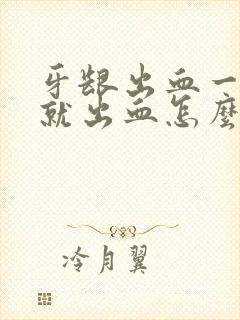 牙龈出血一
就出血怎麼
冷月翼